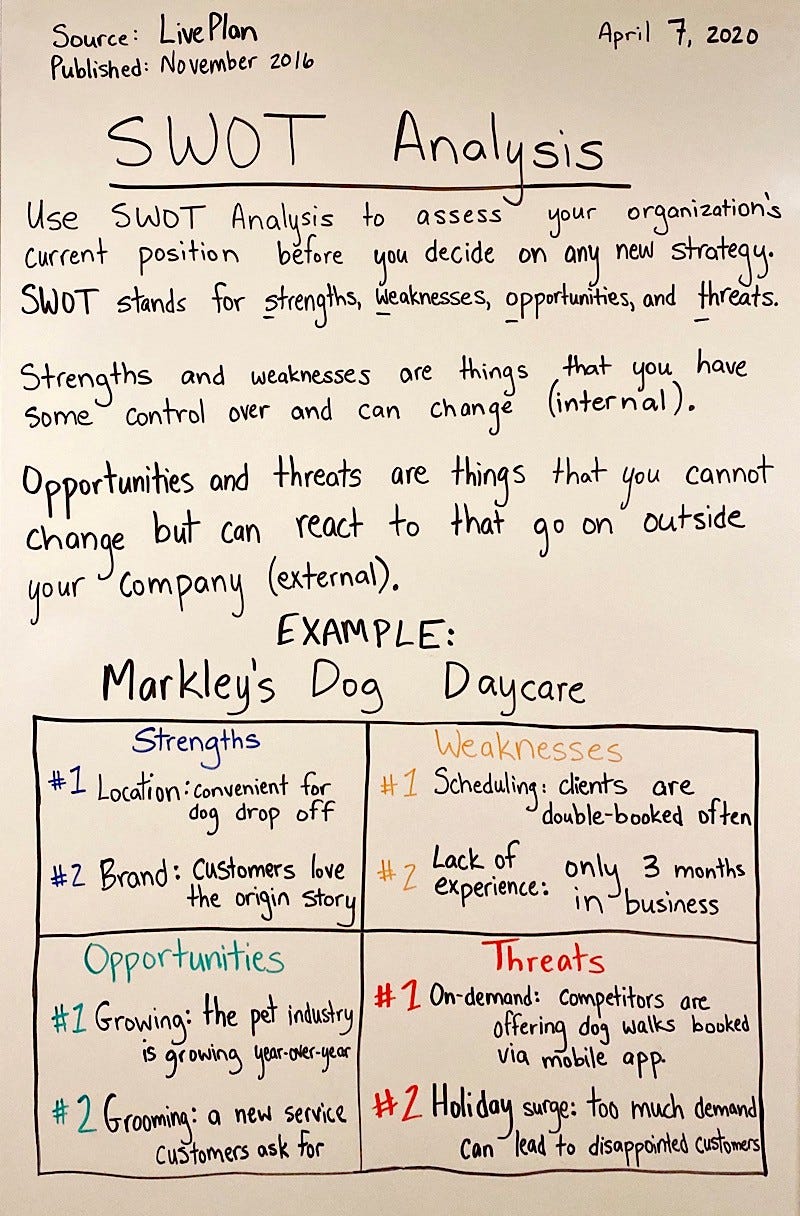 Source: LivePlan
April 7, 2020
Published: November 2016
SWOT Analysis
Use SWOT Analysis to assess your organization's
current position before you decide on any new strategy.
SWOT stands for strengths, weaknesses, opportunities, and threats.
Strengths and weaknesses are things that you have
some control over and can change (internal).
Opportunities and threats are things that you cannot
change but can react to that go on outside
your company (external).
EXAMPLE:
Markley's Dog Daycare
Strengths
#1 Location: convenient for
dog drop off
#2 Brand: customers love
the origin story
Weaknesses
#1 Scheduling: clients are
double-booked often
#2 Lack of experience: only 3 months
in business
Opportunities
#1 Growing: the pet industry
is growing year-over-year
#2 Grooming: a new service
customers ask for
Threats
#1 On-demand: competitors are
offering dog walks booked
via mobile app.
#2 Holiday surge: too much demand
can lead to disappointed customers